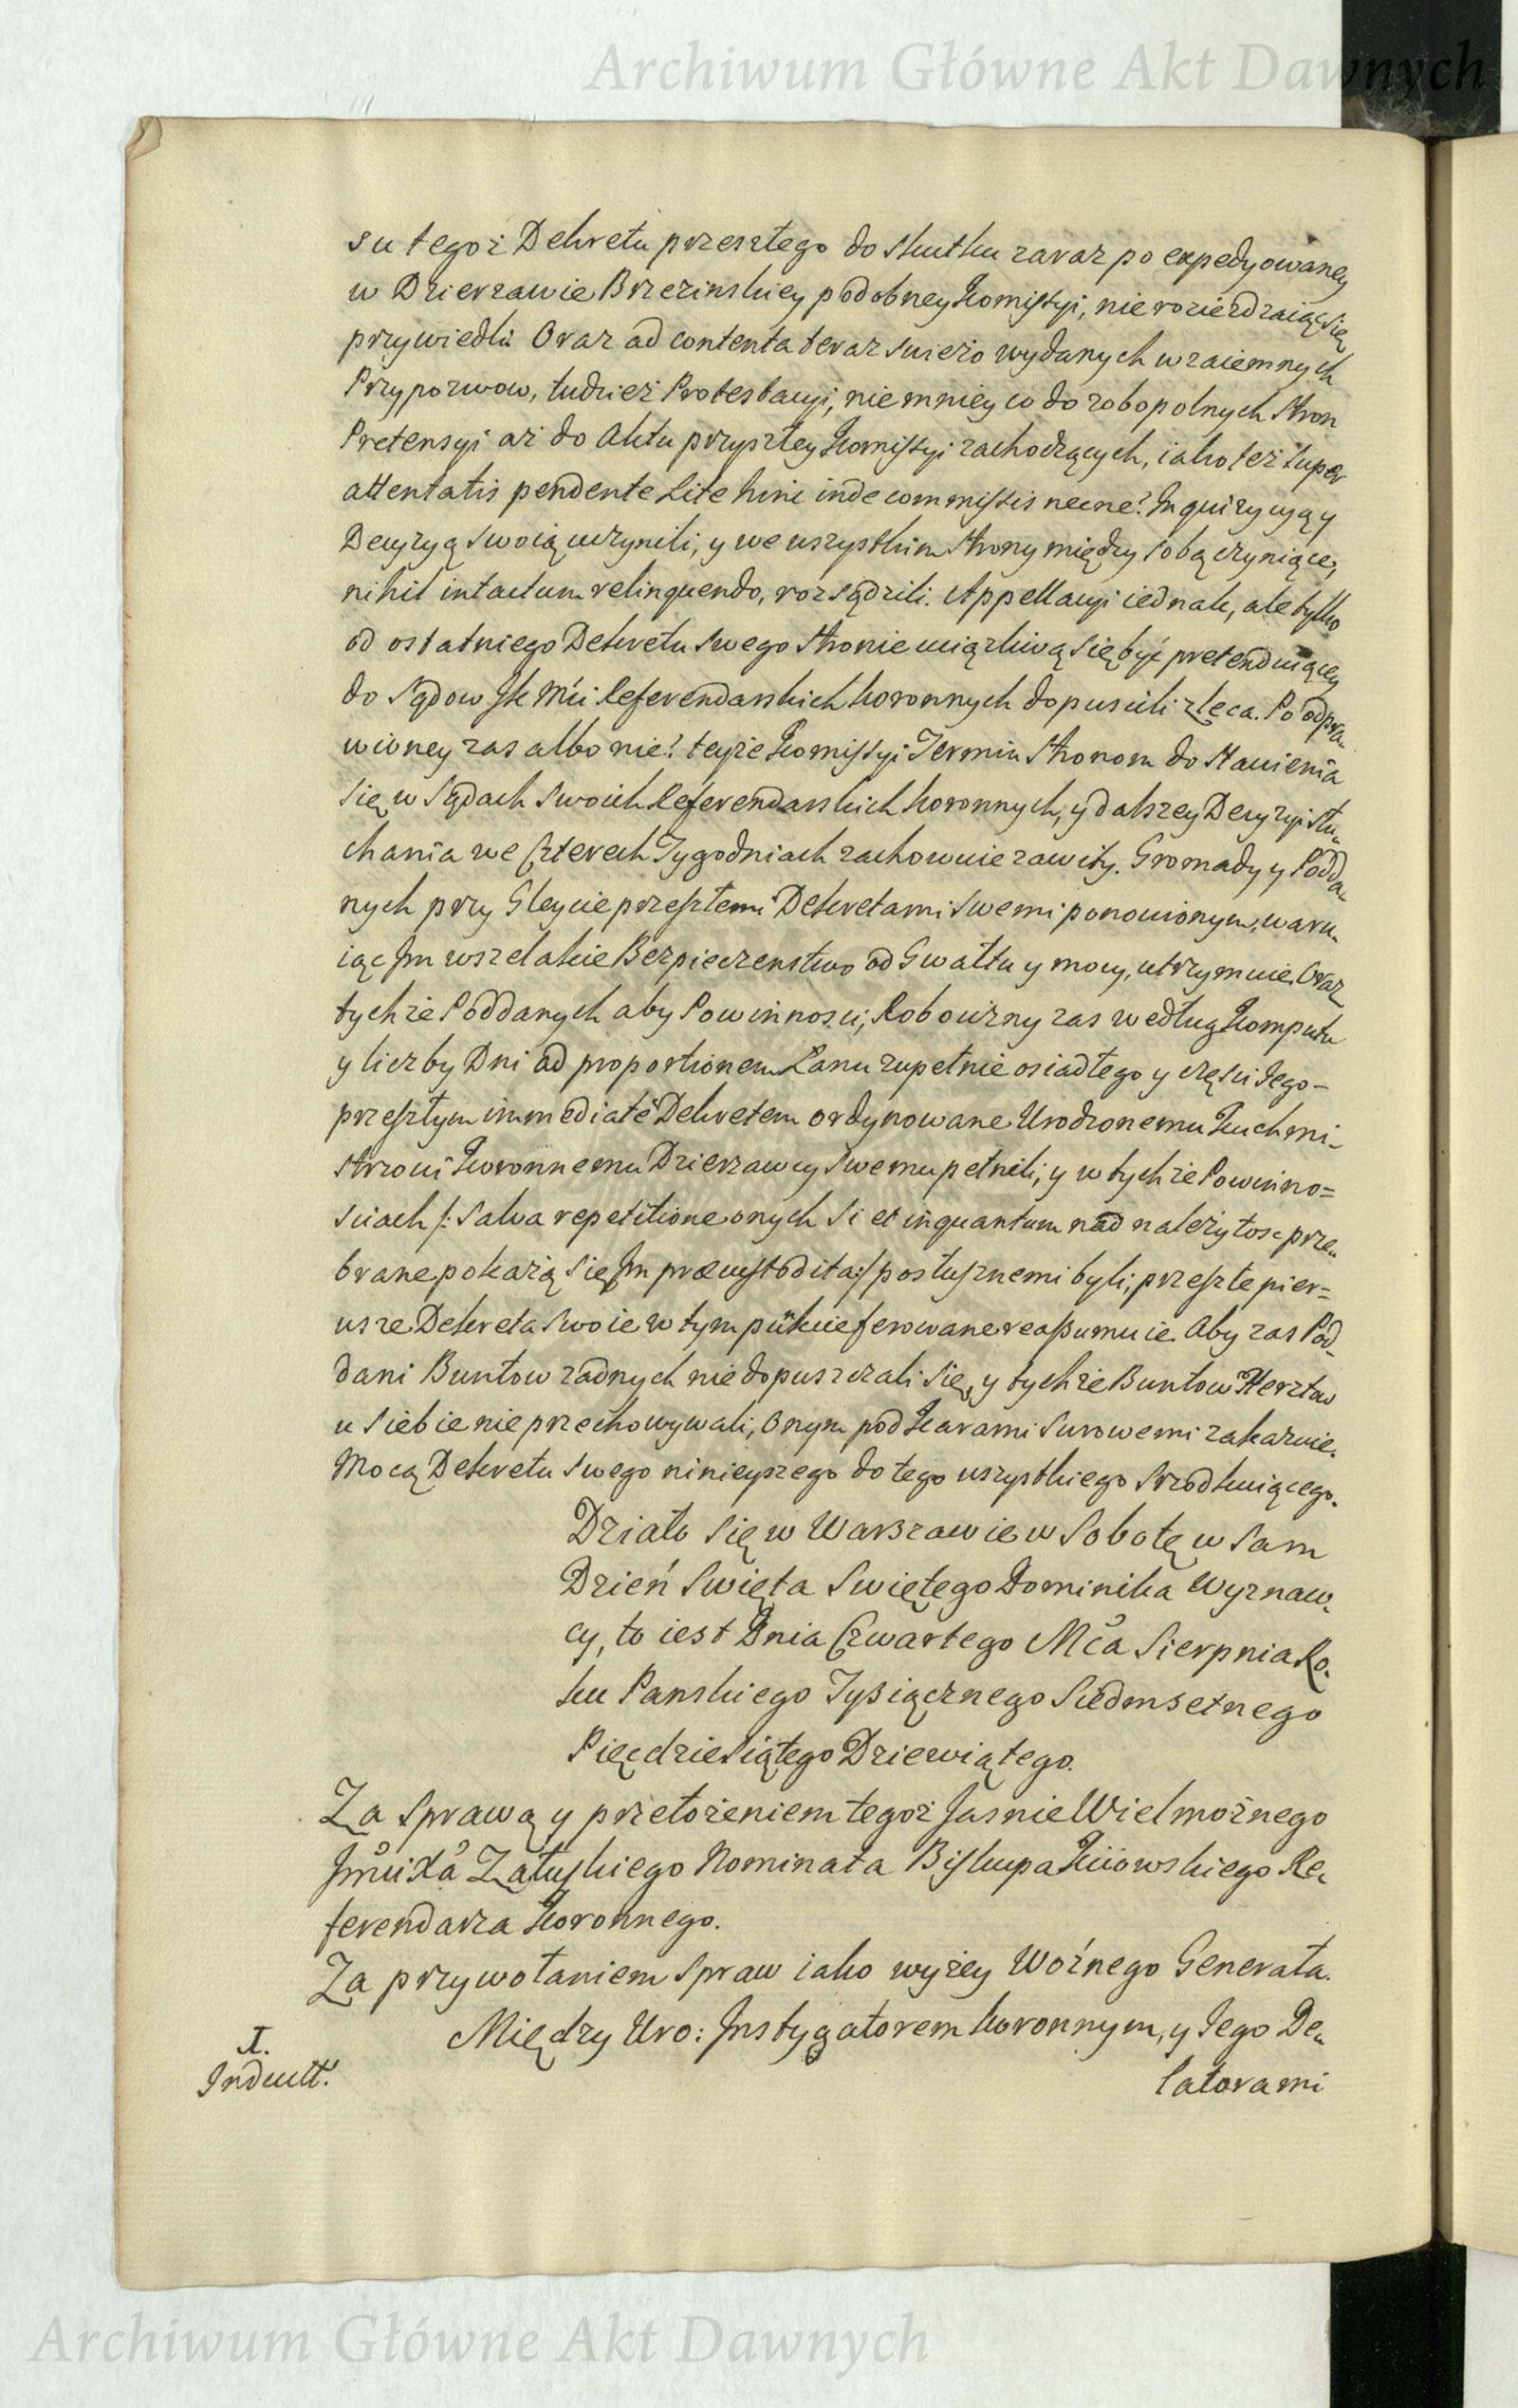 Archiwum Główne Akt Dawnych
su tegoż Dekretu przeszłego do skutku zaraz po expedyowaney
w Dzierzawie Brzezinskiey podobney Komissyi, nierozieżdzaiąc się
przywiedli. Oraz ad contenta teraz swieżo wydanych wzaiemnych
Przypozwow, tudzież Protestacyi, niemniey co do zobopolnych Stron
Pretensyi aż do Aktu przyszłey Komissyi zachodzących, iako też super
attentatis pendente Lite hinc inde commissis necne? Inquizycyą y
Decyzyą swoią uczynili, y we wszystkim Strony między sobą czyniące,
nihil intactum relinquendo, rozsądzili. Appellacyi iednak, ale tylko
od ostatniego Dekretu swego Stronie uciążliwą się być pretenduiącey
do Sądow Jch Mci Referendarskich Koronnych dopuscili zleca. Po odpra-
wioney zas albo nie? teyże Komissyi Termin Stronom do Stawienia
się w Sądach swoich Referendarskich Koronnych, y dalszey Decyzyi słu-
chania we Czterech Tygodniach zachowuie zawity. Gromady y Podda-
nych przy Gleycie przeszłemi Dekretami swemi ponowionym, waru-
iąc Im wszelakie Bezpieczenstwo od Gwałtu y mocy, utrzymuie. Oraz
tychże Poddanych aby Powinnosci, Robocizny zas według Komputu
y liczby Dni ad proportionem Łanu zupełnie osiadłego y częsci Jego-
przeszłym immediatè Dekretem ordynowane Urodzonemu Kuchmi-
strzowi Koronnemu Dzierzawcy swemu pełnili, y w tychże Powinno=
sciach /: salva repetitione onych si et inquantum nad należytosc prze-
brane pokażą się Im præcustodita :/ posłusznemi byli, przeszłe pier=
wsze Dekreta swoie w tym pukcie ferowane reassumuie. Aby zas Pod-
dani Buntow zadnych niedopuszczali się, y tychże Buntow Hersztow
u siebie nieprzechowywali, onym pod Karami surowemi zakazuie.
Mocą Dekretu swego ninieyszego do tego wszystkiego srzodkuiącego.
Działo się w Warszawie w Sobotę w sam
Dzień Swięta Swiętego Dominika Wyznaw-
cy, to iest Dnia Czwartego Mca Sierpnia Ro-
ku Panskiego Tysiącznego Siedmsetnego
Pięcdziesiątego Dziewiątego.
Za sprawą y przełożeniem tegoż Jasnie Wielmożnego
Jmci Xa Załuskiego Nominata Biskupa Kiiowskiego Re-
ferendarza Koronnego.
Za przywołaniem spraw iako wyżey Woźnego Generała.
Między Uro: Instygatorem Koronnym, y Jego De-
I.
Indult.
latorami
Archiwum Główne Akt Dawnych